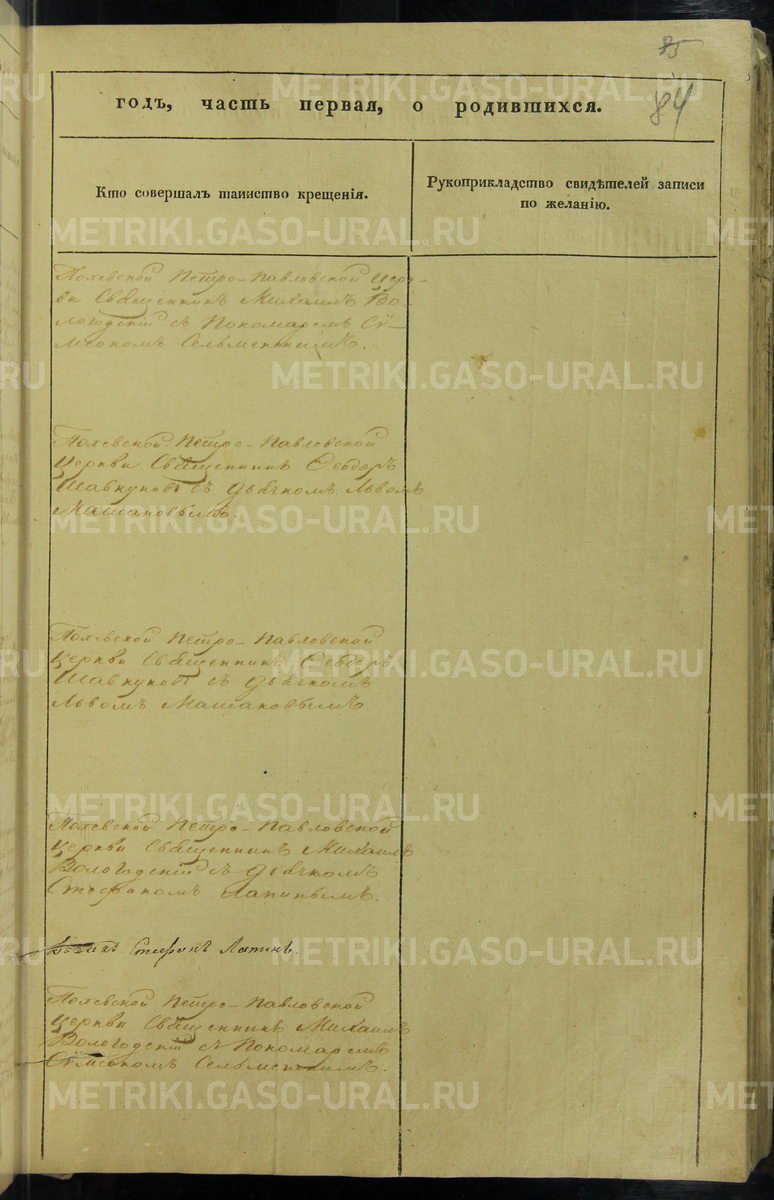 85
84
годъ, часть первая, о родившихся.
Кто совершалъ таинство крещенія.
Рукоприкладство свидѣтелей записи
по желанію.
Полевской Петро-Павловской церк-
ви Священникъ Михаилъ Во-
логодскій съ Пономаремъ Сѵ-
меономъ Сельменскимъ.
Полевской Петро-Павловской
Церкви Священникъ Ѳеодоръ
Шавкуновъ съ дьячкомъ Львомъ
Машановымъ.
Полевской Петро-Павловской
Церкви Священникъ Ѳеодоръ
Шавкуновъ съ дьячкомъ
Львомъ Машановымъ.
Полевской Петро-Павловской
Церкви Священникъ Михаилъ
Вологодскій съ дьячкомъ
Стефаномъ Лапинымъ.
Стефанъ Лапинъ.
Полевской Петро-Павловской
Церкви Священникъ Михаилъ
Вологодскій съ Пономаремъ
Сѵмеономъ Сельменскимъ.
METRIKI.GASO-URAL.RU